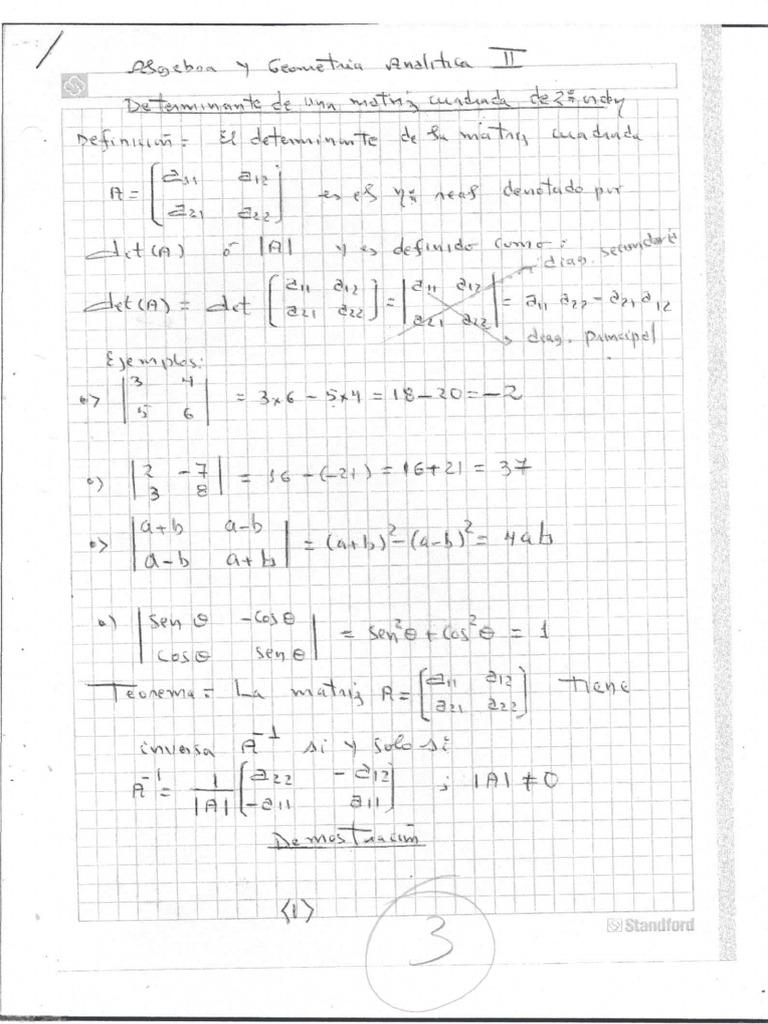 Algebra y Geometria Analitica II
Determinante de una matriz cuadrada de 2º orden
Definición = El determinante de la matriz cuadrada
A = [a11 a12
a21 a22] es el nº real denotado por
det(A) ó |A| y es definido como :
diag. secundaria
det(A) = det [a11 a12
a21 a22] = |a11 a12
a21 a22| = a11 a22 - a21 a12
diag. principal
Ejemplos:
•> |3 4
5 6| = 3x6 - 5x4 = 18 - 20 = -2
•) |2 -7
3 8| = 16 - (-21) = 16 + 21 = 37
•> |a+b a-b
a-b a+b| = (a+b)² - (a-b)² = 4ab
•) |sen θ -cos θ
cos θ sen θ| = sen²θ + cos²θ = 1
Teorema = La matriz A = [a11 a12
a21 a22] tiene
inversa A⁻¹ si y solo si
A⁻¹ = 1/|A| [a22 -a12
-a11 a11] ; |A| ≠ 0
Demostración
<1>
3
Standford